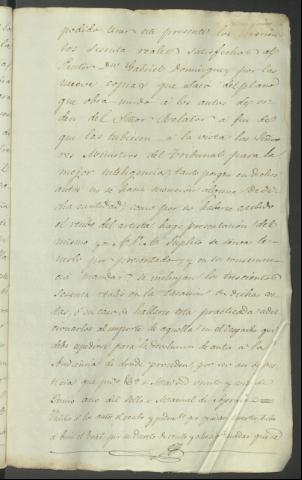 podido tener esto presente los trescien
tos sesenta reales satisfechos al
Pintor Dn. Gabriel Dominguez por las
nueve copias que sacó del plano
que obra unido à los autos de or-
den del Señor Relator à fin de
que las tubiesen à la vista los Seño-
res Ministros del Tribunal para la
mejor inteligencia, tanto porque en dichos
autos no se hace mencion alguna de di-
cha cantidad, como por no haberse recibido
el recibo del artista hago presentacion del
mismo y A. V. A. Suplico se sirva te-
nerlo por presentado, y en su consecuen-
cia mandar se incluyan los trescientos
sesenta reales en la tasacion de dichas cos-
tas, ò en caso de hallarse esta practicada adi-
cionarlos al importe de aquella en el despacho que
debe espedirse para la devolucion de autos à la
Audiencia de donde proceden, por ser asi de jus-
ticia que pido &a. Madrid veinte y uno de
Junio año del Sello = Manuel de